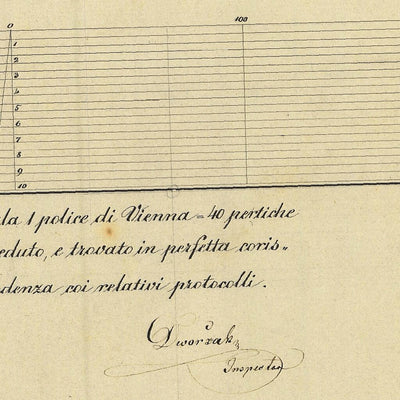 0 100
1
2
3
4
5
6
7
8
9
10
la 1 police di Vienna = 40 pertiche
eduto, e trovato in perfetta coris=
denza coi relativi protocolli.
Dworžak